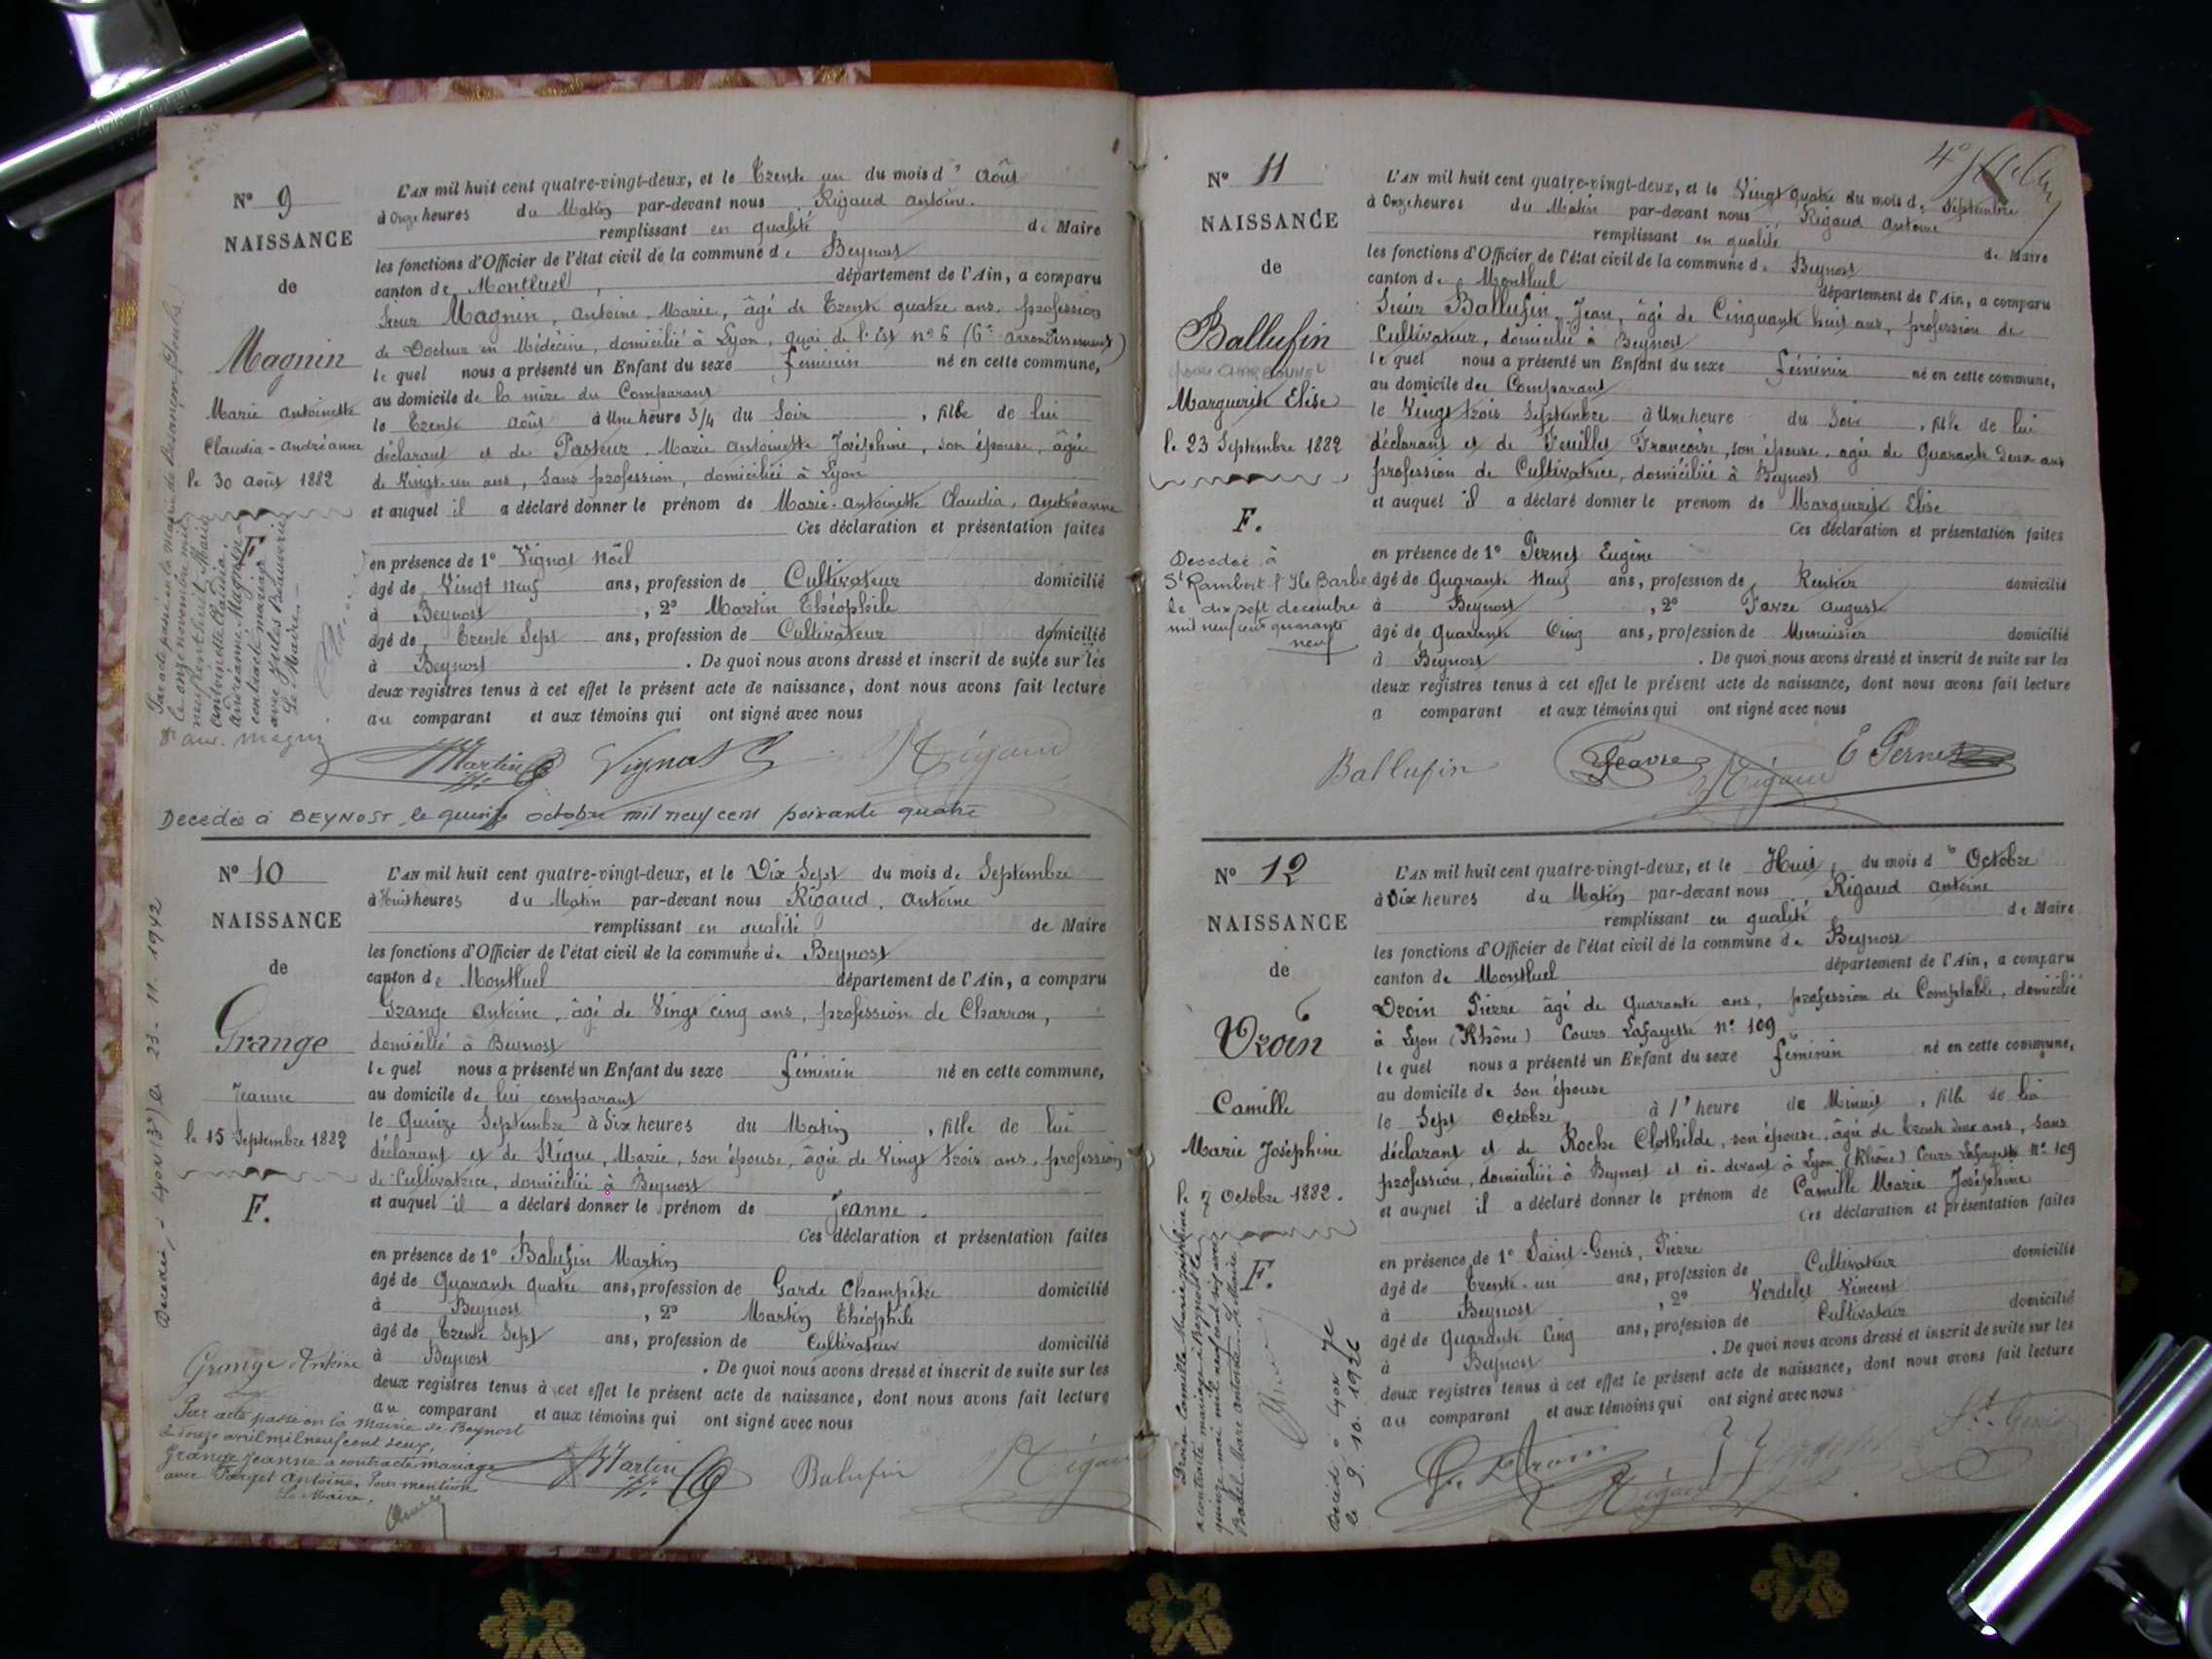 N° 9
NAISSANCE
de
Magnin
Marie Antoinette
Claudia-Andréanne
le 30 Août 1882
F.
Par acte passé en la Mairie de Besançon (Doubs)
le onze novembre mil
neuf cent huit Marie
Antoinette Claudia
Andréanne Magnin
contracté mariage
avec Jules Beauverie
Le Maire
L'AN mil huit cent quatre-vingt-deux, et le Trente un du mois d' Août
à Onze heures du Matin par-devant nous Rigaud Antoine.
remplissant en qualité de Maire
les fonctions d'Officier de l'état civil de la commune de Beynost
canton de Montluel, département de l'Ain, a comparu
Sieur Magnin, Antoine Marie, âgé de Trente quatre ans, profession
de Docteur en Médecine, domicilié à Lyon, quai de l'Est n° 6 (6e arrondissement)
lequel nous a présenté un Enfant du sexe féminin né en cette commune,
au domicile de la mère du Comparant
le Trente Août à Une heure 3/4 du Soir, fille de lui
déclarant et de Pasteur, Marie Antoinette Joséphine, son épouse, âgée
de Vingt-un ans, Sans profession, domiciliée à Lyon
et auquel il a déclaré donner le prénom de Marie-Antoinette Claudia, Andréanne
Ces déclaration et présentation faites
en présence de 1° Vignat Noël
âgé de Vingt neuf ans, profession de Cultivateur domicilié
à Beynost, 2° Martin Théophile
âgé de Trente Sept ans, profession de Cultivateur domicilié
à Beynost. De quoi nous avons dressé et inscrit de suite sur les
deux registres tenus à cet effet le présent acte de naissance, dont nous avons fait lecture
au comparant et aux témoins qui ont signé avec nous
Martin Vignat Rigaud
Decédée à BEYNOST le quinze octobre mil neuf cent soixante quatre
N° 10
NAISSANCE
de
Grange
Jeanne
le 15 Septembre 1882
F.
Decedée à Lyon (3°) le 23-11-1942
L'AN mil huit cent quatre-vingt-deux, et le Dix Sept du mois de Septembre
à Huit heures du Matin par-devant nous Rigaud, Antoine
remplissant en qualité de Maire
les fonctions d'Officier de l'état civil de la commune de Beynost
canton de Montluel département de l'Ain, a comparu
Grange Antoine, âgé de Vingt cinq ans, profession de Charron,
domicilié à Beynost
lequel nous a présenté un Enfant du sexe féminin né en cette commune,
au domicile de lui comparant
le Quinze Septembre à Six heures du Matin, fille de lui
déclarant et de Sègue, Marie, son épouse, âgée de Vingt trois ans, profession
de Cultivatrice, domiciliée à Beynost
et auquel il a déclaré donner le prénom de Jeanne.
Ces déclaration et présentation faites
en présence de 1° Balufin Martin
âgé de Quarante quatre ans, profession de Garde Champêtre domicilié
à Beynost, 2° Martin Théophile
âgé de Trente Sept ans, profession de Cultivateur domicilié
à Beynost. De quoi nous avons dressé et inscrit de suite sur les
deux registres tenus à cet effet le présent acte de naissance, dont nous avons fait lecture
au comparant et aux témoins qui ont signé avec nous
Grange Antoine
Par acte passé en la Mairie de Beynost
le douze avril mil neuf cent deux,
Grange Jeanne a contracté mariage
avec Farget Antoine, Pour mention
Le Maire,
Martin Balufin Rigaud
N° 11
NAISSANCE
de
Ballufin
Marguerite Elise
le 23 Septembre 1882
F.
Decedée à
St Rambert l'Ile Barbe
le dix sept decembre
mil neuf cent quarante
neuf
L'AN mil huit cent quatre-vingt-deux, et le Vingt quatre du mois de Septembre
à Onze heures du Matin par-devant nous Rigaud Antoine
remplissant en qualité de Maire
les fonctions d'Officier de l'état civil de la commune de Beynost
canton de Montluel département de l'Ain, a comparu
Sieur Ballufin, Jean, âgé de Cinquante huit ans, profession de
Cultivateur, domicilié à Beynost
lequel nous a présenté un Enfant du sexe féminin né en cette commune,
au domicile du Comparant
le Vingt trois Septembre à Une heure du Soir, fille de lui
déclarant et de Feuillet Françoise, son épouse, agée de Quarante Deux ans
profession de Cultivatrice, domiciliée à Beynost
et auquel il a déclaré donner le prénom de Marguerite Elise
Ces déclaration et présentation faites
en présence de 1° Pernet Eugène
âgé de Quarante Neuf ans, profession de Rentier domicilié
à Beynost, 2° Favre Auguste
âgé de Quarante Cinq ans, profession de Menuisier domicilié
à Beynost. De quoi nous avons dressé et inscrit de suite sur les
deux registres tenus à cet effet le présent acte de naissance, dont nous avons fait lecture
a comparant et aux témoins qui ont signé avec nous
Ballufin Favre Rigaud E Pernet
N° 12
NAISSANCE
de
Droin
Camille
Marie Joséphine
le 7 Octobre 1882.
F.
Droin Camille Marie Joséphine
a contracté mariage à
quinze mai mil neuf cent
Décédée à Lyon 7e
le 9.10.1926
L'AN mil huit cent quatre-vingt-deux, et le Huit, du mois d' Octobre
à Dix heures du Matin par-devant nous Rigaud Antoine
remplissant en qualité de Maire
les fonctions d'Officier de l'état civil de la commune de Beynost
canton de Montluel département de l'Ain, a comparu
Droin Pierre âgé de Quarante ans, profession de Comptable, domicilié
à Lyon (Rhône) Cours Lafayette N° 109
lequel nous a présenté un Enfant du sexe féminin né en cette commune,
au domicile de son épouse
le Sept Octobre, à l'heure de Minuit, fille de lui
déclarant et de Roche Clothilde, son épouse, âgée de trente deux ans, Sans
profession, domiciliée à Beynost et ci-devant à Lyon (Rhône) Cours Lafayette N° 109
et auquel il a déclaré donner le prénom de Camille Marie Joséphine
Ces déclaration et présentation faites
en présence de 1° Saint-Genis, Pierre
âgé de Trente-un ans, profession de Cultivateur domicilié
à Beynost, 2° Verdelet Vincent
âgé de Quarante Cinq ans, profession de Cultivateur domicilié
à Beynost. De quoi nous avons dressé et inscrit de suite sur les
deux registres tenus à cet effet le présent acte de naissance, dont nous avons fait lecture
au comparant et aux témoins qui ont signé avec nous
P. Droin Rigaud St Genis